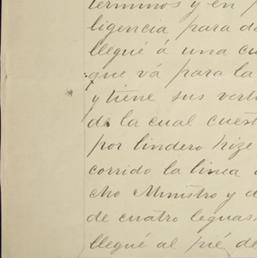 terminos y en p
ligencia, para de
llegué á una cu
que vá para la
y tiene sus vert
de la cual cuest
por lindero hize
corrido la linea
cho Ministro y d
de cuatro leguas
llegué al pié de